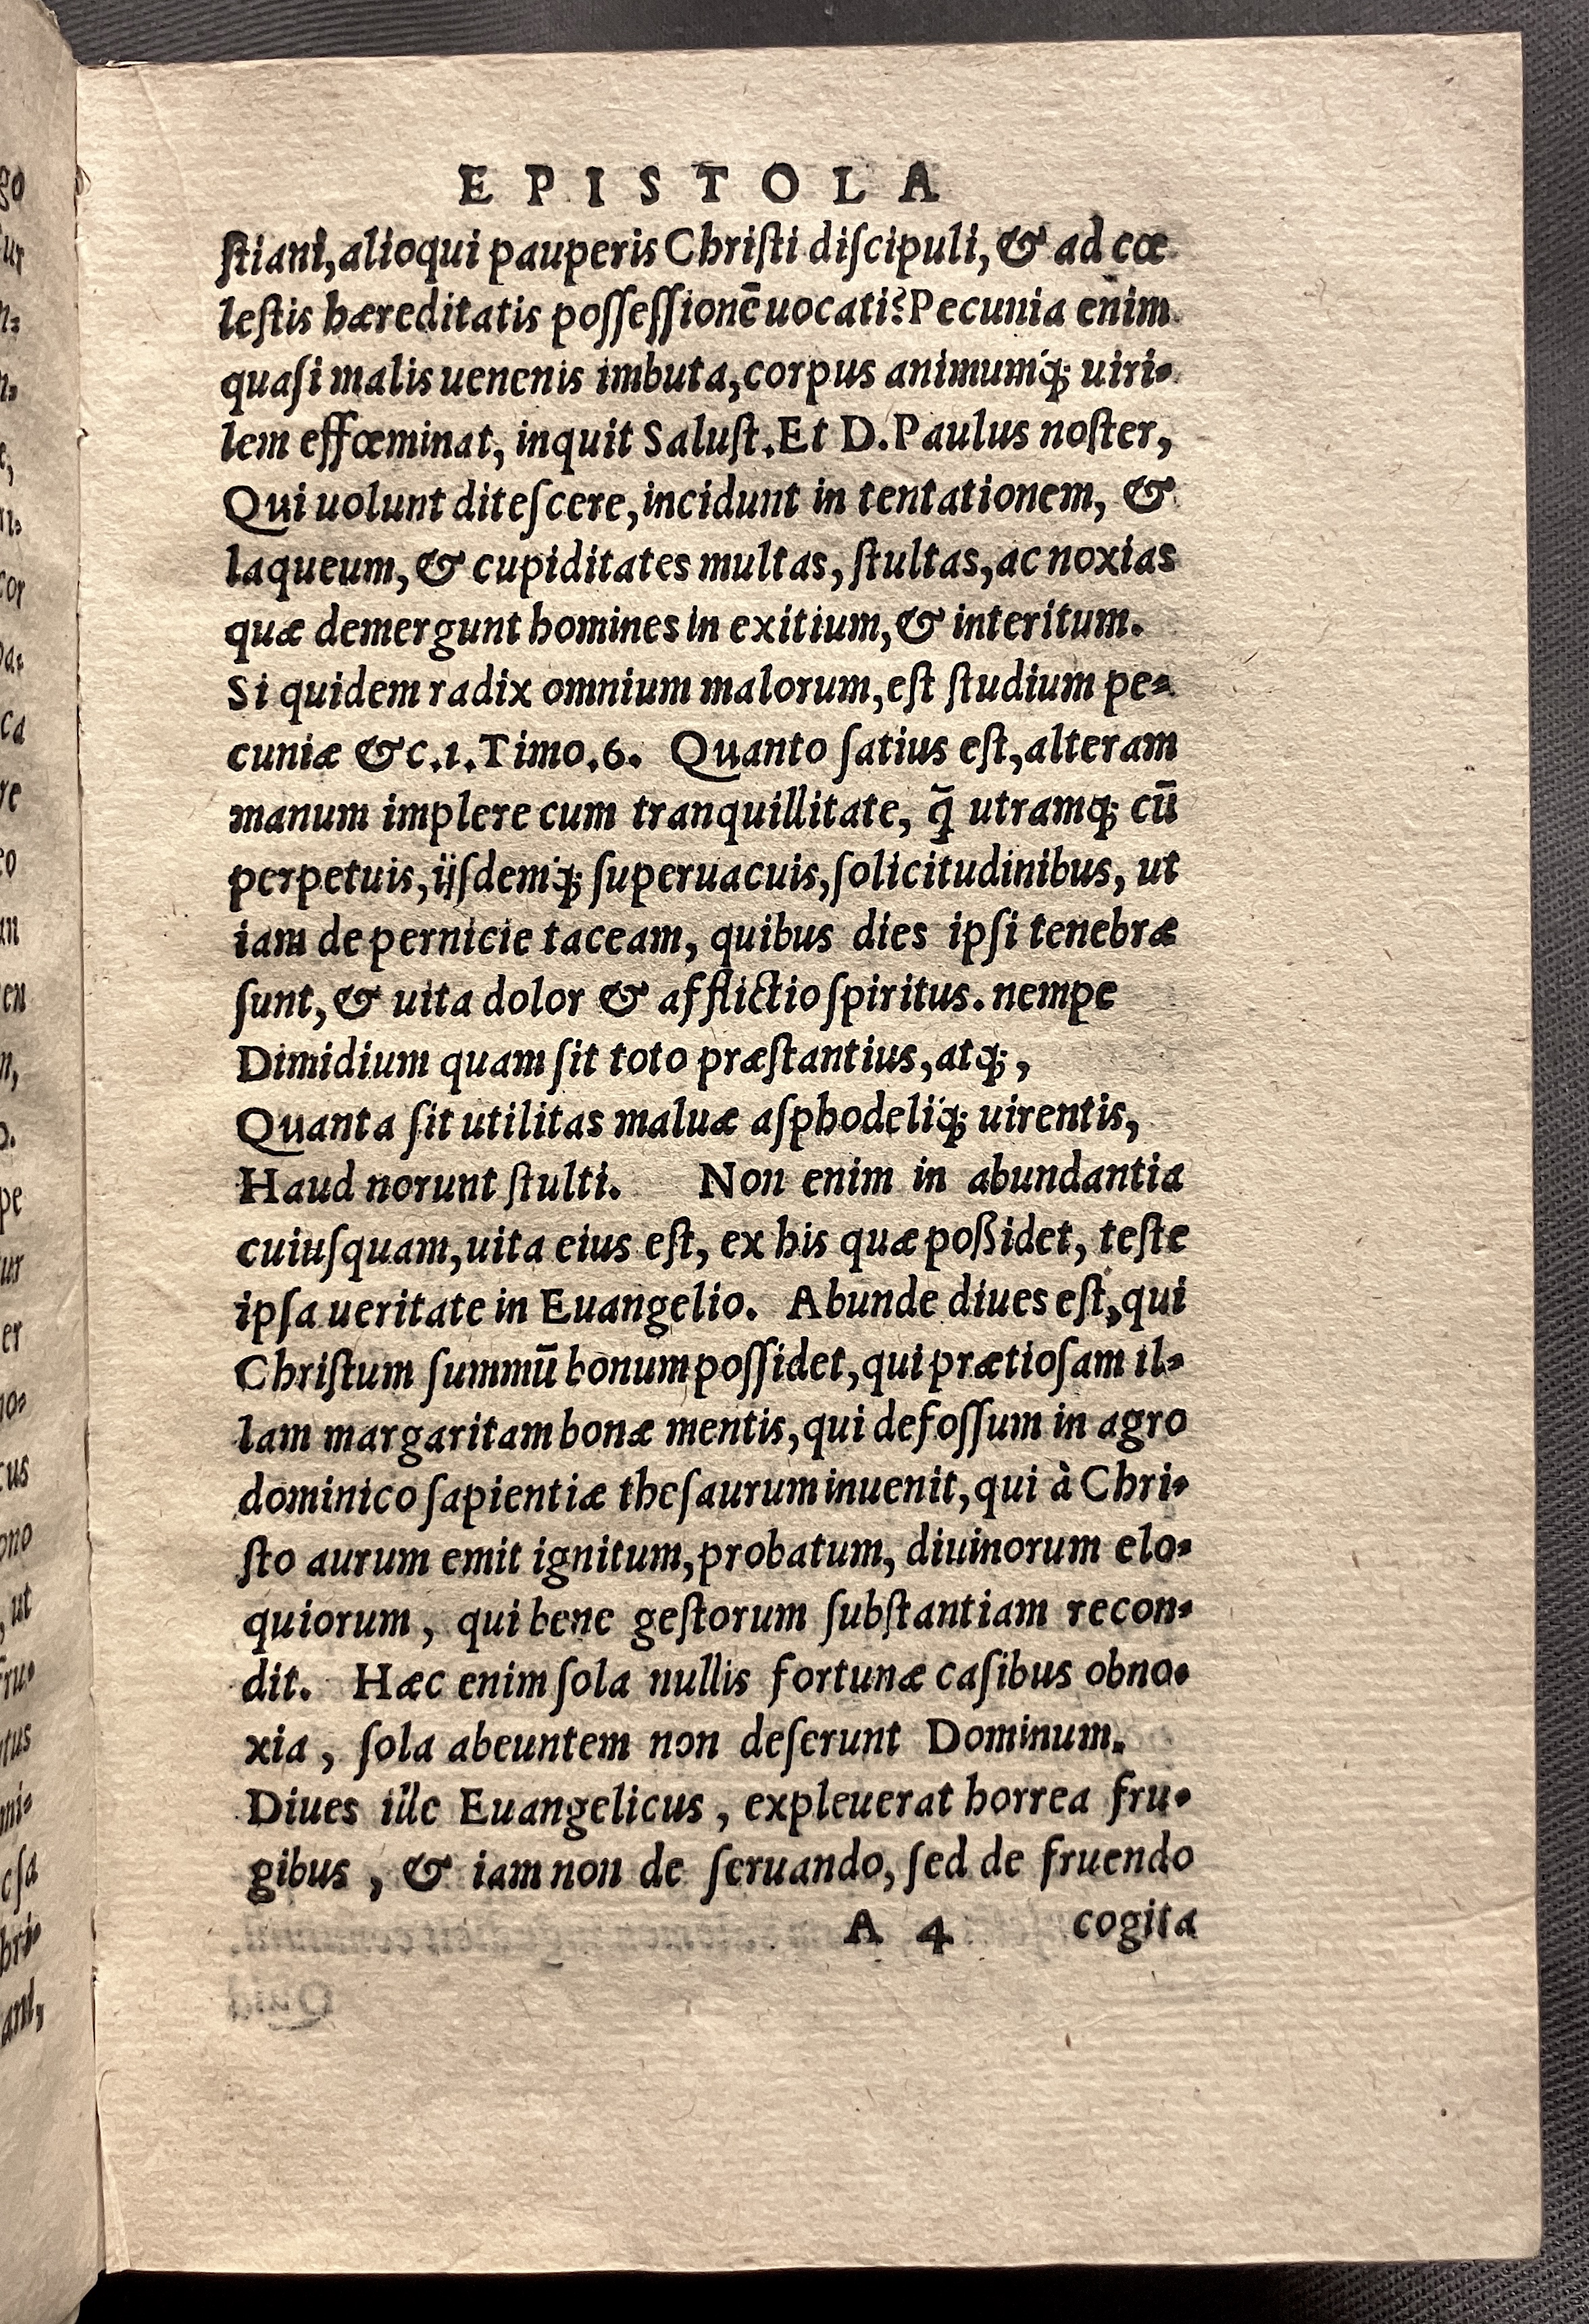 EPISTOLA
ſtiani, alioqui pauperis Chriſti diſcipuli, & ad cœ
leſtis hæreditatis poſſeſſionē uocati? Pecunia enim
quaſi malis uenenis imbuta, corpus animumq́; uiri-
lem effœminat, inquit Saluſt. Et D. Paulus noſter,
Qui uolunt diteſcere, incidunt in tentationem, &
laqueum, & cupiditates multas, ſtultas, ac noxias
quæ demergunt homines in exitium, & interitum.
Si quidem radix omnium malorum, eſt ſtudium pe-
cuniæ &c. 1. Timo. 6. Quanto ſatius eſt, alteram
manum implere cum tranquillitate, q̄ utramq; cū
perpetuis, ijſdemq́; ſuperuacuis, ſolicitudinibus, ut
iam de pernicie taceam, quibus dies ipſi tenebræ
ſunt, & uita dolor & afflictio ſpiritus. nempe
Dimidium quam ſit toto præſtantius, atq;,
Quanta ſit utilitas maluæ aſphodeliq́; uirentis,
Haud norunt ſtulti. Non enim in abundantia
cuiuſquam, uita eius eſt, ex his quæ poßidet, teſte
ipſa ueritate in Euangelio. Abunde diues eſt, qui
Chriſtum ſummū bonum poſſidet, qui prætioſam il-
lam margaritam bonæ mentis, qui defoſſum in agro
dominico ſapientiæ theſaurum inuenit, qui à Chri-
ſto aurum emit ignitum, probatum, diuinorum elo-
quiorum, qui bene geſtorum ſubſtantiam recon-
dit. Hæc enim ſola nullis fortunæ caſibus obno-
xia, ſola abeuntem non deſerunt Dominum.
Diues ille Euangelicus, expleuerat horrea fru-
gibus, & iam non de ſeruando, ſed de fruendo
A 4 cogita